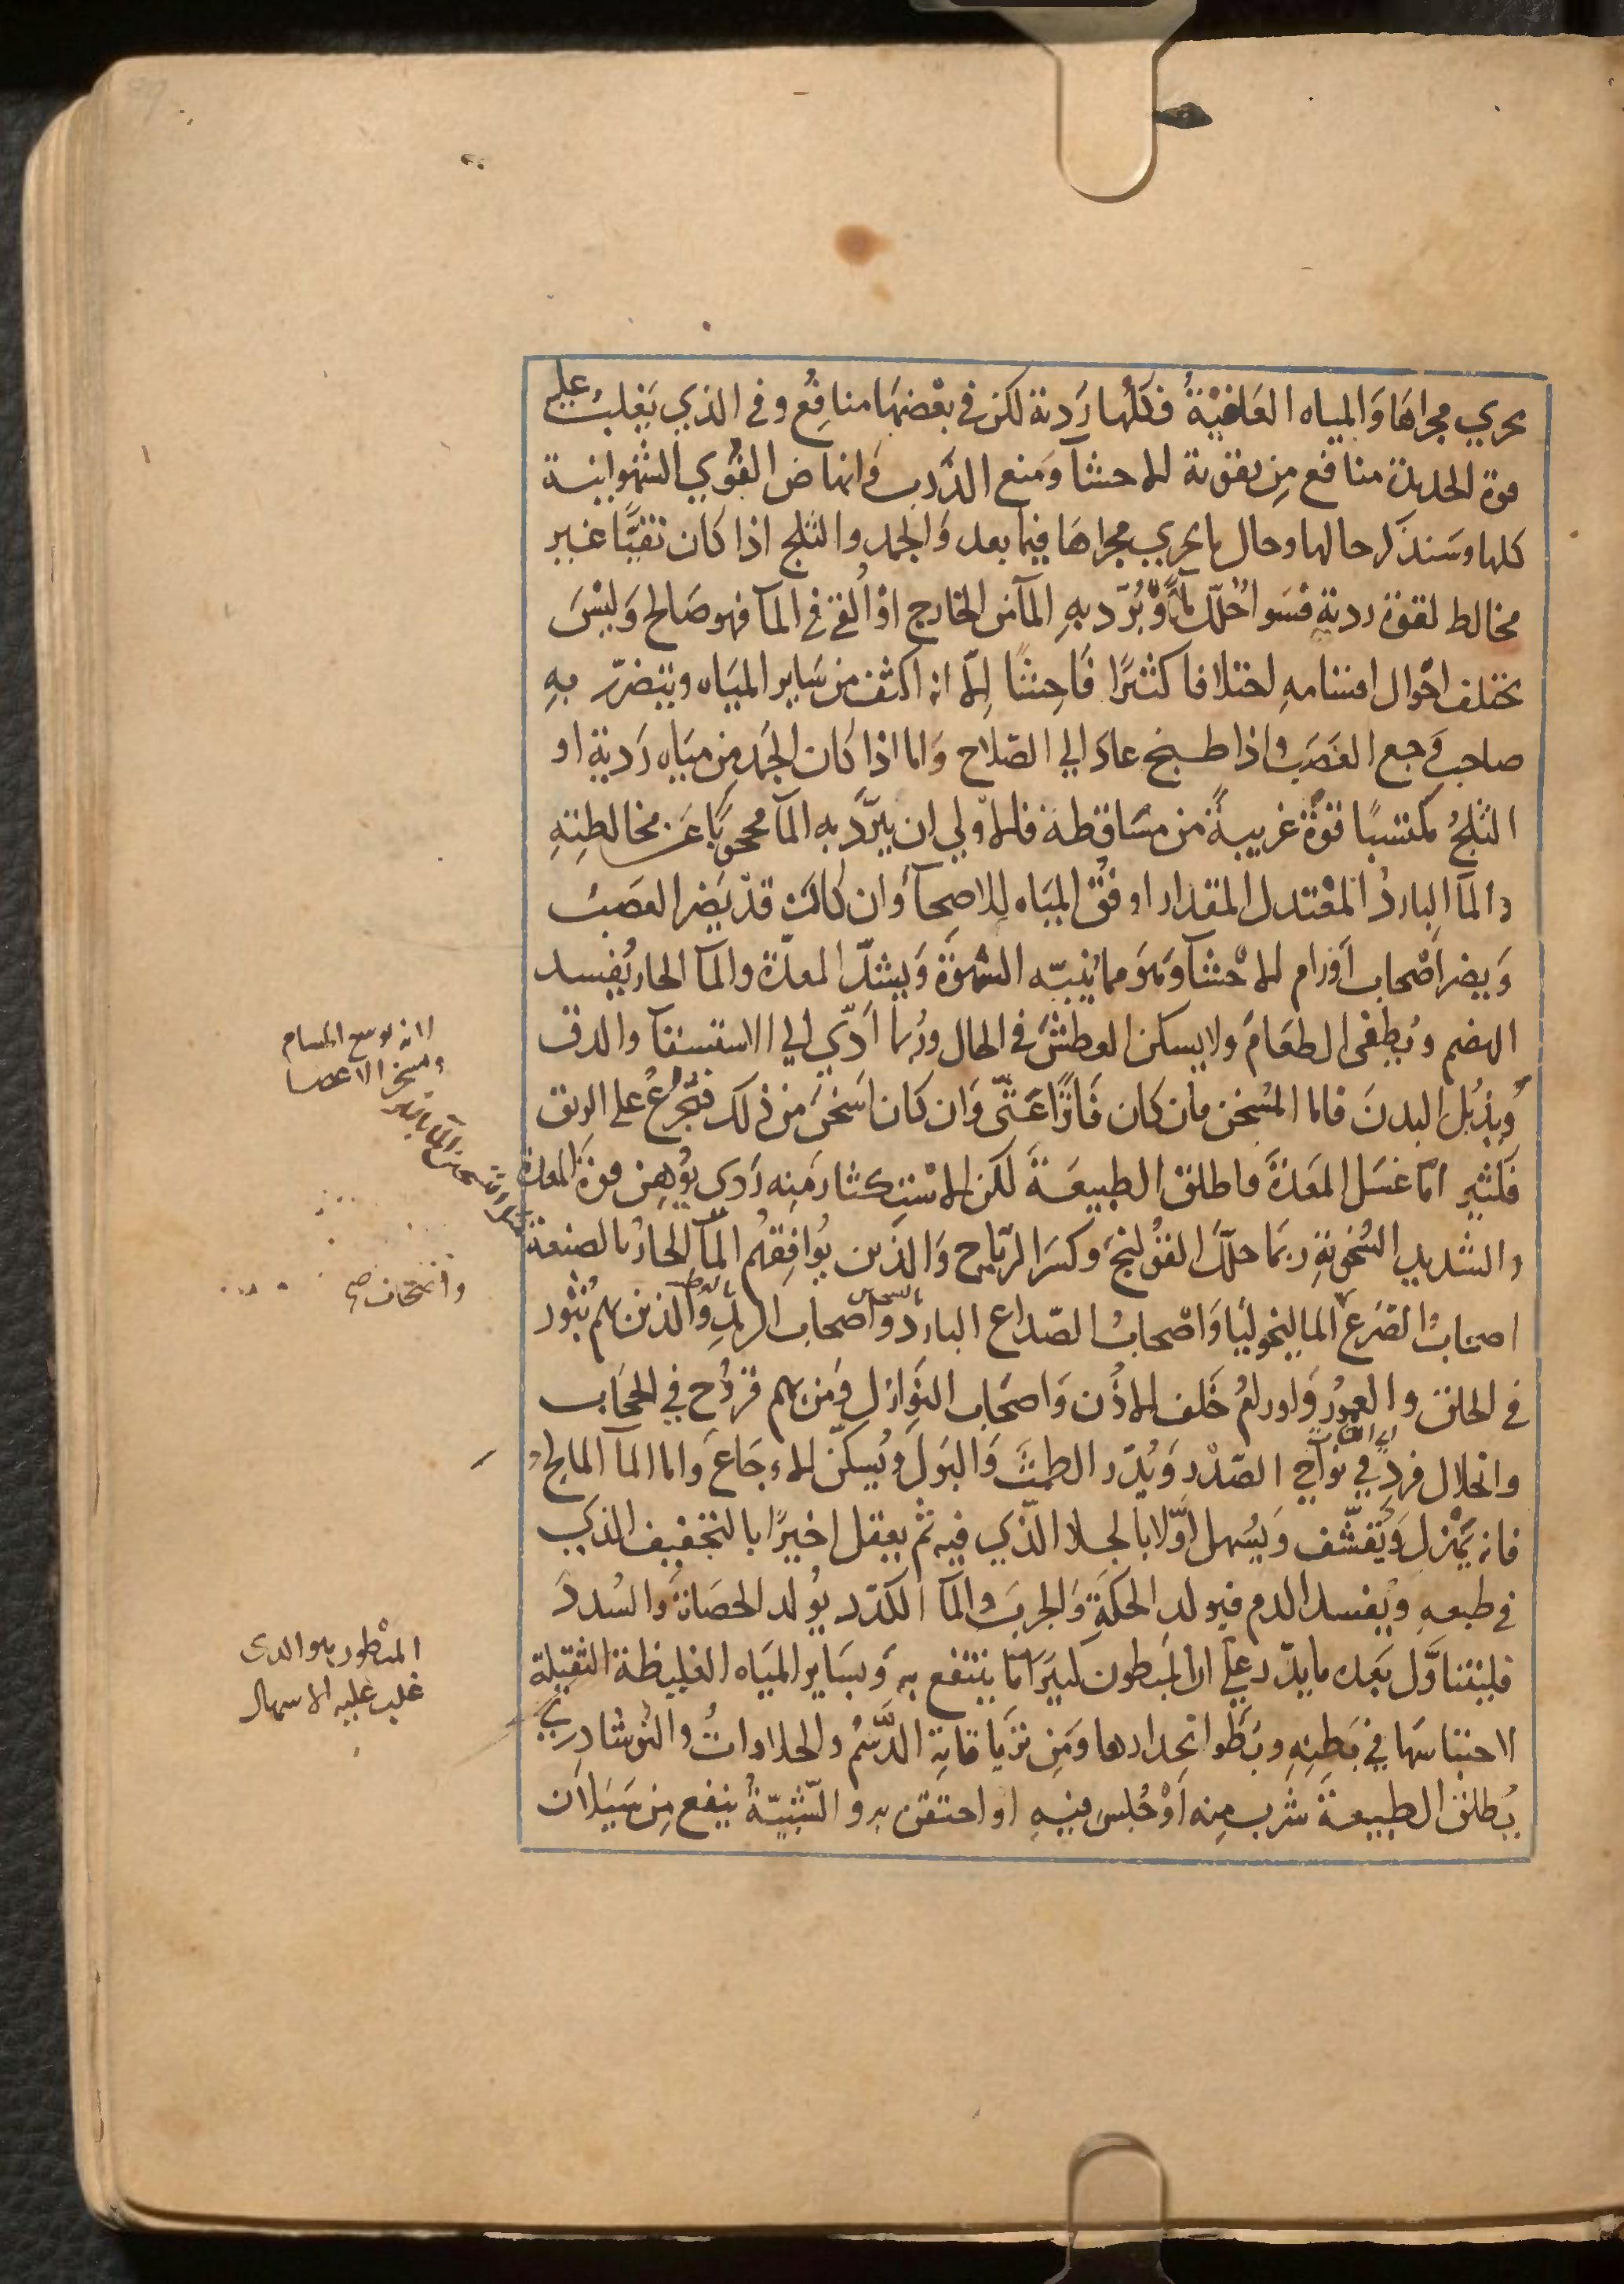 يجري مجراها والمياه العلقية فكلها ردية لكن في بعضها منافع وفي الذي يغلب عليه
قوة الحديد منافع من تقوية الاحشآ ومنع الذرب وانهاض القوي الشهوانية
كلها وسنذكر حالها وحال ما يجري مجراها فيما بعد والجمد والثلج اذا كان نقيا غير
مخالط لقوة ردية فسوا حلل مآ او برد به المآ من الخارج او القي في المآ فهو صالح وليس
يختلف احوال اقسامه اختلافا كثيرا فاحشا الا انه اكثف من ساير المياه ويتضرر به
صاحب وجع العصب واذا طبخ عاد الي الصلاح واما اذا كان الجمد من مياه ردية او
الثلج مكتسبا قوة غريبة من مساقطه فالاولي ان يبرد به المآ محجوبا عن مخالطته
والمآ البارد المعتدل المقدار اوفق المياه للاصحآ وان كان قد يضر العصب
ويضر اصحاب اورام الاحشآ وهو مما ينبه الشهوة ويشد المعدة والمآ الحار يفسد
الهضم ويطفي الطعام ولا يسكن العطش في الحال وربما ادي الي الاستسقآ والدق
ويذبل البدن فاما المسخن فان كان فاترا غثي وان كان اسخن من ذلك فتجرع علي الريق
فكثيرا ما غسل المعدة واطلق الطبيعة لكن الاستكثار منه ردي يوهن قوة المعدة
والشديد السخونة ربما حلل القولنج وكسر الرياح والذين يوافقهم المآ الحار بالصنعة
اصحاب الصرع الماليخوليا واصحاب الصداع البارد واصحاب الرمد والذين بهم بثور
في الحلق والعمور واورام خلف الاذن واصحاب النوازل ومن بهم قروح في الحجاب
وانحلال فرد في نواحي الصدر ويدر الطمث والبول ويسكن الاوجاع واما المآ المالح
فانه يهزل ويقشف ويسهل اولا بالجلا الذي فيه ثم يعقل اخيرا بالتجفيف الذي
في طبعه ويفسد الدم فيولد الحكة والجرب والمآ الكدر يولد الحصاة والسدد
فليتناول بعده ما يدر علي ان المبطون كثيرا ما ينتفع به وبساير المياه الغليظة الثقيلة
لاحتباسها في بطنه وبطو انحدارها ومن ترياقاته الدسم والحلاوات والنوشادري
يطلق الطبيعة شرب منه او جلس فيه او احتقن به والشبية ينفع من سيلان
لانه يوسع المسام
ويسخن الاعضا
المبطون هو الذي
غلب عليه الاسهال